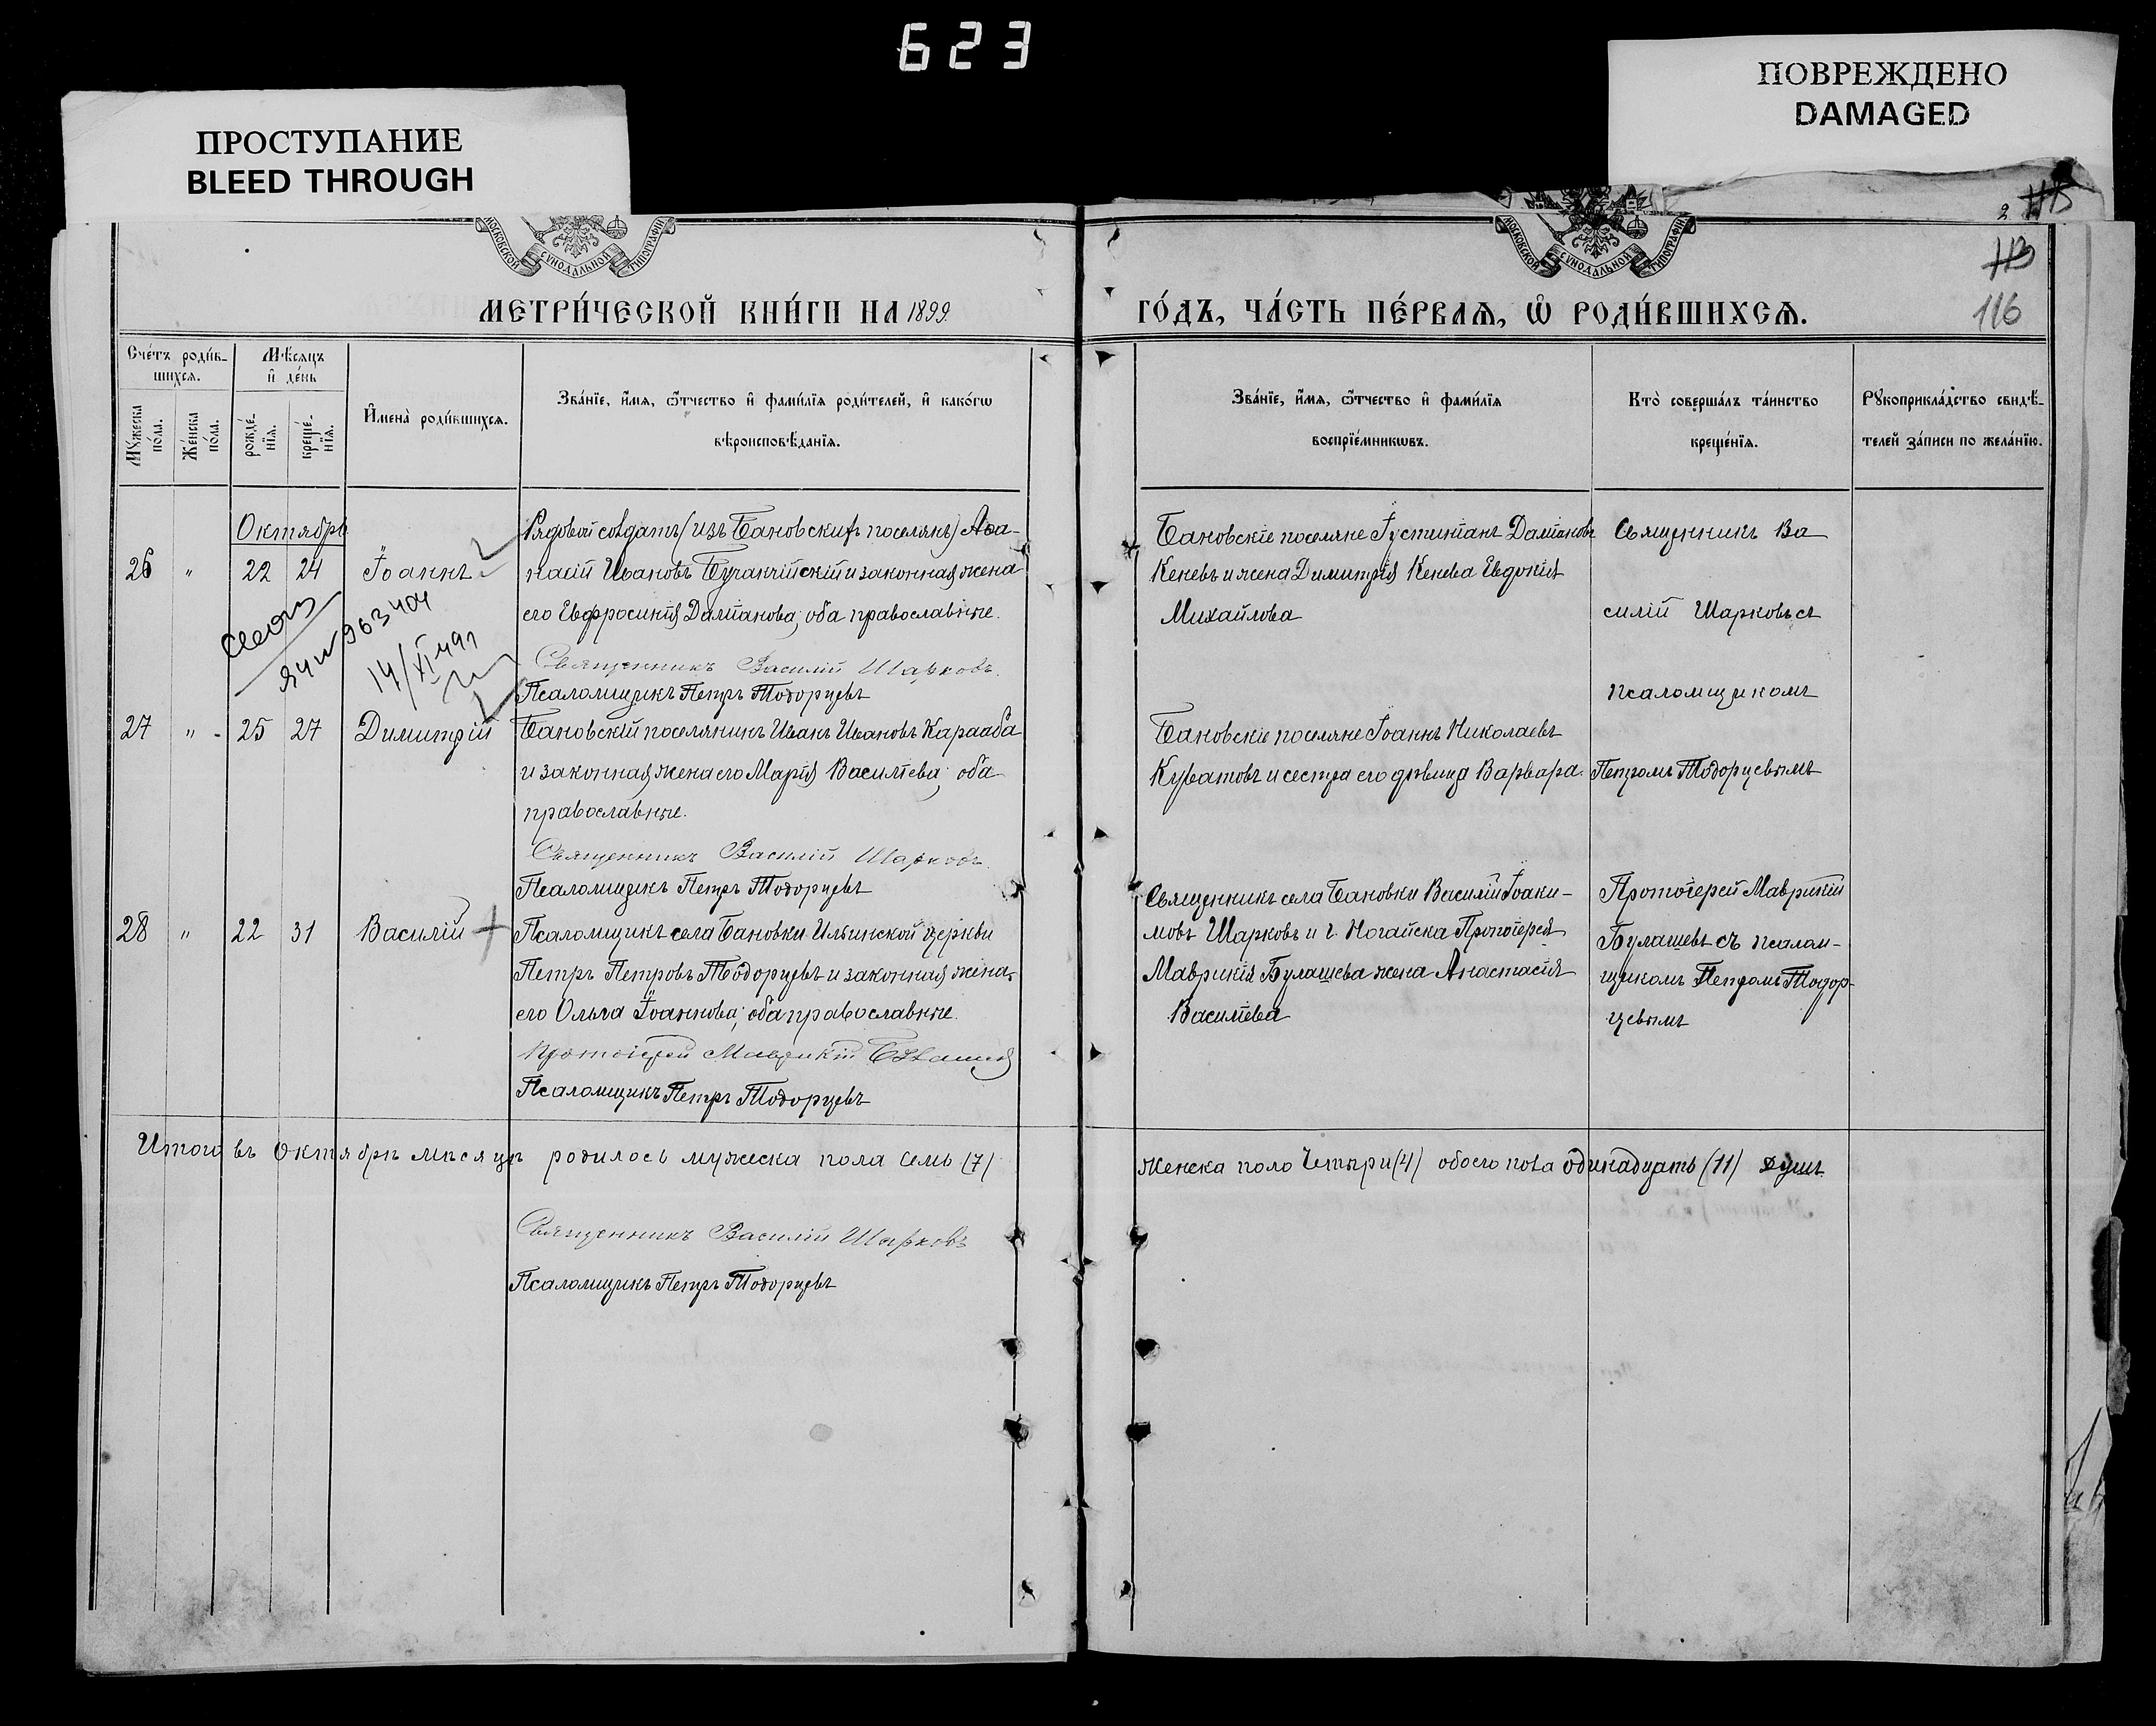 623
ПРОСТУПАНИЕ
BLEED THROUGH
ПОВРЕЖДЕНО
DAMAGED
МОСКОВСКОЙ СУНОДАЛЬНОЙ ТИПОГРАФІИ
МОСКОВСКОЙ СУНОДАЛЬНОЙ ТИПОГРАФІИ
2 115
113
116
МЕТРИ́ЧЕСКОЙ КНИ́ГИ НА 1899
ГО́ДЪ, ЧА́СТЬ ПЕ́РВАѦ, Ѡ҆ РОДИ́ВШИХСѦ.
Сче́тъ роди́в-
шихсѧ.
Мꙋжеска по́ла.
Же́нска по́ла.
Мѣ́сѧцъ
и҆ де́нь
рожде́-
нїѧ.
креще́-
нїѧ.
И҆мена̀ роди́вшихсѧ.
Зва́нїе, и҆́мѧ, ѻ҆́тчество и҆ фами́лїѧ роди́телей, и҆ како́гѡ
вѣроисповѣ́данїѧ.
Зва́нїе, и҆́мѧ, ѻ҆́тчество и҆ фами́лїѧ
воспрїе́мникѡвъ.
Кто̀ соверша́лъ та́инство
креще́нїѧ.
Рꙋкоприкла́дство свидѣ́-
телей за́писи по жела́нїю.
Октябрь
26 " 22 24 Іоаннъ
Рядовой солдатъ (изъ Бановскихъ поселянъ) Аѳа-
насій Ивановъ Бучакчійскій и законная жена
его Евфросинія Даміанова; оба православные.
Священникъ Василій Шарковъ.
Псаломщикъ Петръ Тодорцевъ
Бановскіе поселяне Іустиніанъ Даміановъ
Кеневъ и жена Димитрія Кенева Евдокія
Михайлова
Священникъ Ва
силій Шарковъ съ
псаломщикомъ
Петромъ Тодорцевымъ
963404
14/XI
27 " 25 27 Димитрій
Бановскій поселянинъ Иванъ Ивановъ Караабa
и законная жена его Марія Васильева; оба
православные.
Священникъ Василій Шарковъ.
Псаломщикъ Петръ Тодорцевъ
Бановскіе поселяне Іоаннъ Николаевъ
Куватовъ и сестра его дѣвица Варвара.
28 " 22 31 Василій
Псаломщикъ села Бановки Ильинской церкви
Петръ Петровъ Тодорцевъ и законная жена
его Ольга Іоаннова; оба православные.
Протоіерей Маврикій Булашевъ
Псаломщикъ Петръ Тодорцевъ
Священникъ села Бановки Василій Іоаки-
мовъ Шарковъ и г. Ногайска Протоіерея
Маврикія Булашева жена Анастасія
Васильева
Протоіерей Маврикій
Булашевъ съ псалом-
щикомъ Петромъ Тодор-
цевымъ
Итого въ Октябрѣ мѣсяцѣ родилось мужеска пола семь (7)
женска поло четыри (4) обоего пола одинадцать (11) душъ.
Священникъ Василій Шарковъ
Псаломщикъ Петръ Тодорцевъ